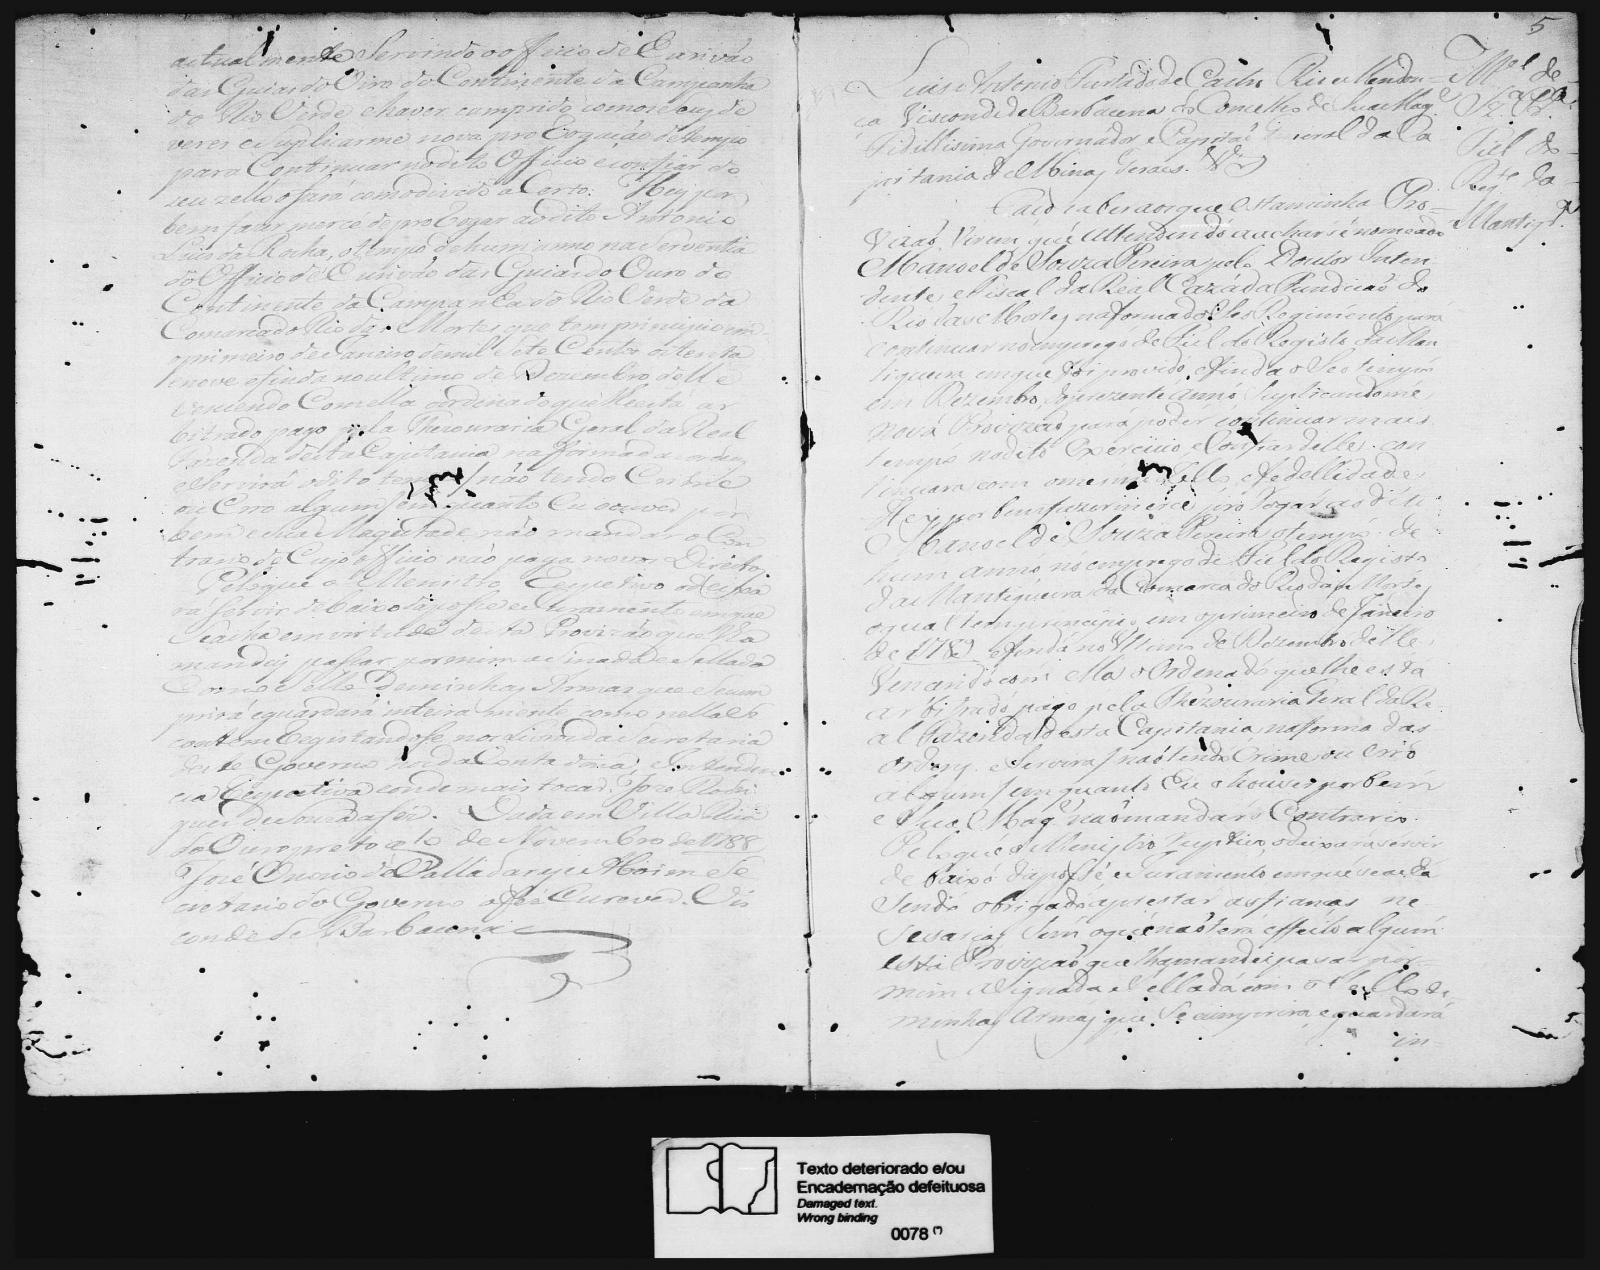 actualmente Servindo o officio de Escrivão
das Guias do Oiro do Continente da Campanha
do Rio Verde e haver cumprido com os seus de
veres e Suplicarme nova pro Rogação de tempo
para Continuar no dito Officio e confiar do
seu zello o fará como divido e Certo: Hey por
bem fazer merce de pro Rogar ao dito Antonio
Luis da Rocha, o tempo de hum anno na Serventia
do Officio de Escrivão das Guias do Ouro do
Continente da Campanha do Rio Verde da
Comarca do Rio das Mortes que tem principio em
o primeiro de Janeiro de mil Sete Centos oitenta
e nove e finda no ultimo de Dezembro delle
vencendo Com ella o ordenado que lhe está ar
bitrado pago pela Thezouraria Geral da Real
Fazenda desta Capitania na forma das ordens
e Servirá o dito tempo / não tendo Crime
ou Erro algum / em quanto Eu o ouver por
bem e Sua Magestade não mandar o Con
trario de Cujo officio não paga novos Direitos
Pelo que o Menistro Respetivo o deixa
rá servir debaixo da posse e Juramento em que
se acha em virtude desta Provizão que lha
mandey passar por mim asinada e Sellada
Com o Sello de minhas Armas que se cum
prirá e guardará inteiramente como nella se
contem Registandose nos Livros da Secretaria
deste Governo nos da Contadoria, e Intenden
cia Respectiva e onde mais tocar. Joze Rodri
gues de Souza a fés. Dada em Villa Rica
do Ouro preto a 10 de Novembro de 1788
José Onorio de Valladares e Aboim Se
cretario do Governo a fes Escrever. Vis
conde de Barbacena
5
Luis Antonio Furtado de Castro Rio e Mendon-
ça Visconde de Barbacena do Concelho de Sua Mage.
Fidilissima Governador e Capitão General da Ca
pitania de Minas Geraes. &&
Mel de
Sz. Pra.
Fiel do
Regto da
Mantigra.
Faço saber aos que esta minha Pro-
vizaõ Virem que attendendo a achar-se nomeado
Manoel de Souza Pereira pelo Doutor Inten
dente, e Fiscal da Real Caza da Fundiçaõ do
Rio das Mortes na forma do Seo Regimento para
continuar no emprego de Fiel do Registo da Man
tiqueira em que foi provido, e finda o Seo tempo
em Dezembro do prezente anno Suplicandome
nova Provizaõ para poder continuar mais
tempo no dito Exercicio, e Confiar delle, con
tinuara com o mesmo Zello, e fedellidade
Hey por bem fazer merce, pro Rogar ao dito
Manoel de Souza Pereira o tempo de
hum anno no emprego de Fiel do Registo
da Mantiqueira da Comarca do Rio das Mortes
o qual tem principio em o primeiro de Janeiro
de 1789 e finda no Ultimo de Dezembro delle
Vencendo com ella o Ordenado que lhe está
arbitrado pago pela Thezouraria Geral da Re
al Fazenda desta Capitania na forma das
ordens e Servirá / naõ tendo Crime ou Erro
algum / em quanto Eu o houver por bem
e Sua Mage. naõ mandar o Contrario.
Pelo que o Menistro Respetivo o deixará servir
de baixo da posse e Juramento em que se acha
Sendo obrigado a prestar as fianças ne
sesarias Sem o que naõ terá effeito algum
esta Provizaõ que lha mandei pasar por
mim asignada e Sellada com o Sello de
minhas Armas que Se cumprirá e guardará
in-
Texto deteriorado e/ou
Encadernação defeituosa
Damaged text.
Wrong binding
0078 (*)